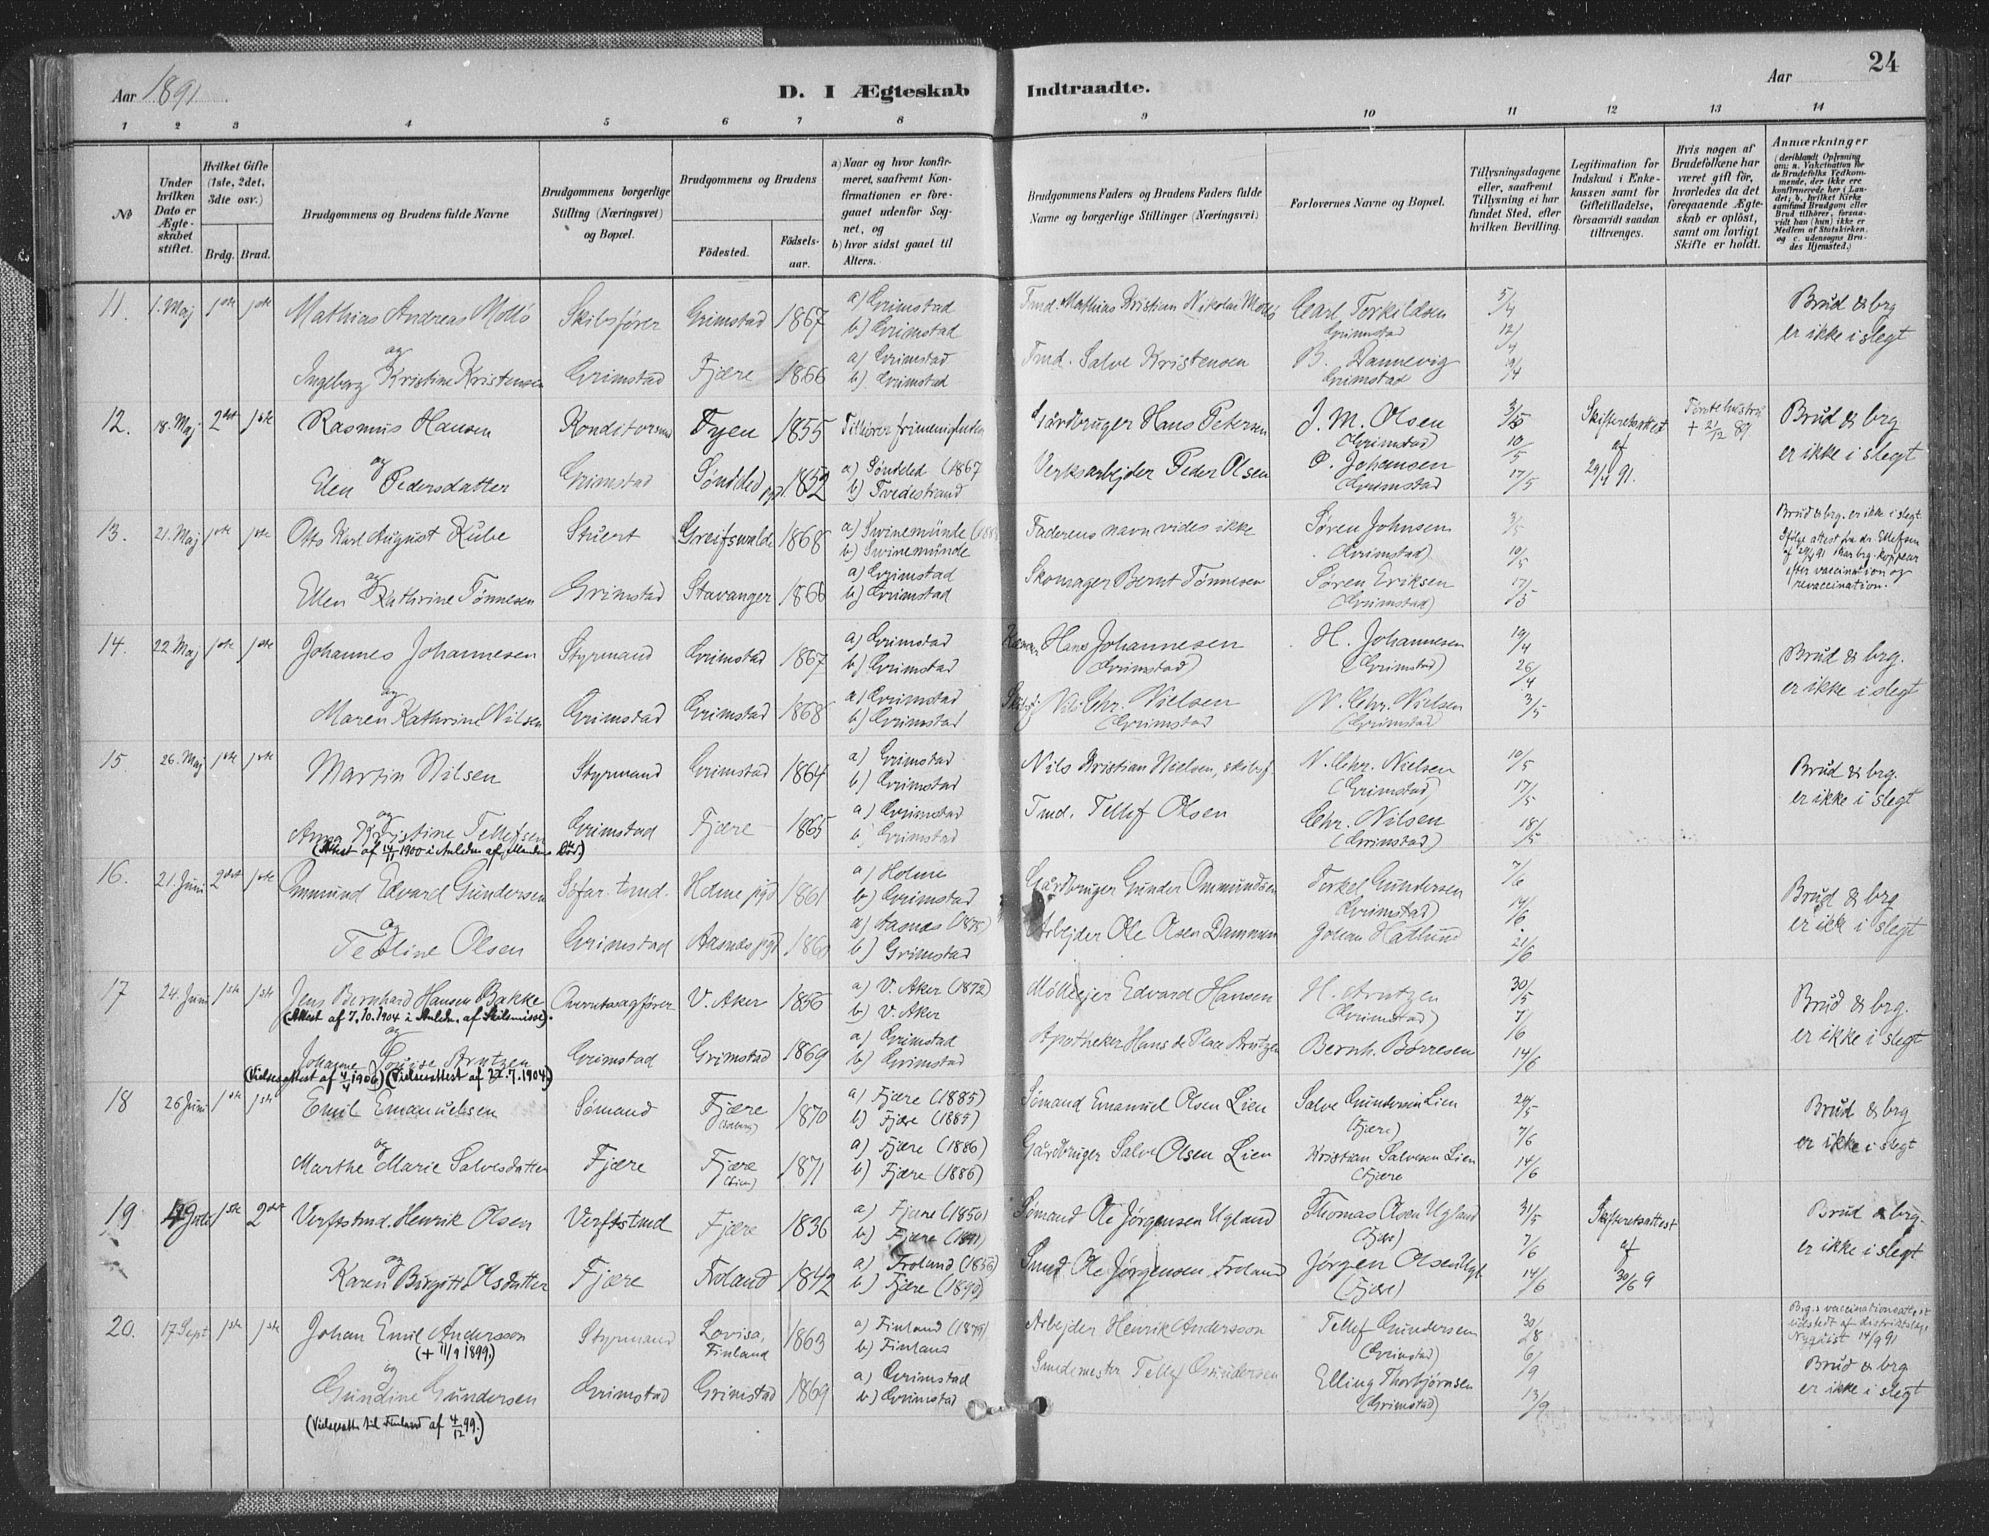 Aar 1891
D. I Ægteskab Indtraadte.
Aar
24
1 2 3 4 5 6 7 8 9 10 11 12 13 14
No
Under hvilken Dato er Ægteskabet stiftet.
Hvilket Gifte (1ste, 2det, 3die osv.)
Brdg. Brud.
Brudgommens og Brudens fulde Navne
Brudgommens borgerlige Stilling (Næringsvei) og Bopæl.
Brudgommens og Brudens
Födested.
Födsels-aar.
a) Naar og hvor konfirmeret, saafremt Konfirmationen er foregaaet udenfor Sognet, og
b) hvor sidst gaaet til Alters.
Brudgommens Faders og Brudens Faders fulde Navne og borgerlige Stillinger (Næringsvei)
Forlovernes Navne og Bopæl.
Tillysningsdagene eller, saafremt Tillysning ei har fundet Sted, efter hvilken Bevilling.
Legitimation for Indskud i Enkekassen samt for Giftetilladelse, forsaavidt saadan tiltrænges.
Hvis nogen af Brudefolkene har været gift för, hvorledes da det foregaaende Ægteskab er oplöst, samt om lovligt Skifte er holdt.
Anmærkninger
(deriblandt Oplysning om: a. Vakcination for de Brudefolks Vedkommende, der ikke ere konfirmerede her i Landet; b. hvilket Kirkesamfund Brudgom eller Brud tilhörer, forsaavidt han (hun) ikke er Medlem af Statskirken, og c. udensogns Brudes Hjemsted.)
11. 1. Maj 1ste 1ste Mathias Andreas Mollö Skibsfører Grimstad 1867 a) Grimstad b) Grimstad Tmd. Mathias Kristian Nikolai Carl Torkildsen Grimstad 5/4 12/4 Brud & brg er ikke i slegt
og Ingeborg Kristine Kristensen Grimstad Fjære 1866 a) Grimstad b) Grimstad Tmd. Salve Kristensen B. Hannevig Grimstad 19/4
12. 18. Maj 2det 1ste Rasmus Hansen Konditorsvd Fyen 1855 Tilhører frimenigheden Gårdbruger Hans Petersen J. M. Olsen (Grimstad) 3/5 10/5 Skifteretsattest af 29/4 91. Første hustru + 21/12 89 Brud & brg er ikke i slegt
og Elen Pedersdatter Grimstad Søndeled pgd. 1852 a) Søndeled (1867 b) Tvedestrand Verksarbejder Peder Olsen O. Johansen (Grimstad 17/5
13. 21. Maj 1ste 1ste Otto Karl August Kube Stuert Greifswalde 1868 a) Swinemünde b) Swinemünde Faderens navn vides ikke Søren Johnsen (Grimstad) 3/5 10/5 Brud & brg. er ikke i slegt. Ifølge attest fra dr. Ellefsen af 29/4 91 har brg. kopper efter vaccination og revaccination.
og Ellen Kathrine Tønnesen Grimstad Stavanger 1866 a) Grimstad b) Grimstad Skomager Bernt Tønnesen Søren Eriksen (Grimstad) 17/5
14. 22. Maj 1ste 1ste Johannes Johannesen Styrmand Grimstad 1867 a) Grimstad b) Grimstad Hans Johannesen (Grimstad) H. Johannesen (Grimstad) 19/4 26/4 Brud & brg. er ikke i slegt
og Maren Kathrine Nilsen Grimstad Grimstad 1868 a) Grimstad b) Grimstad Chr. Nielsen (Grimstad N. Chr. Nielsen (Grimstad 3/5
15. 26. Maj 1ste 1ste Martin Nilsen Styrmand Grimstad 1864 a) Grimstad b) Grimstad Nils Kristian Nielsen, skibsf. N. Chr. Nielsen (Grimstad) 10/5 17/5 Brud & brg. er ikke i slegt
og Anna Kristine Tellefsen Grimstad Fjære 1865 a) Grimstad b) Grimstad Tmd. Tellef Olsen Chr. Nilsen (Grimstad) 18/5
(Attest af 14/11 1900 i Anledn. af Mandens Død.)
16. 21. Juni 2det 1ste Ommund Edvard Gundersen Søfar. tmd. Holme pgd 1861 a) Holme b) Grimstad Gårdbruger Gunder Ommundsen Torkel Gundersen (Grimstad) 7/6 14/6 Brud & brg er ikke i slegt
og Teoline Olsen Grimstad Aasnes pgd 1860 a) Aasnes (1875) b) Grimstad Arbejder Ole Olsen Dammen Johan Hatlund 21/6
17 24. Juni 1ste 1ste Jens Bernhard Hansen Bakke Overretssagfører V. Aker 1856 a) V. Aker (1872) b) V. Aker Mølleejer Edvard Hansen H. Arntzen (Grimstad) 30/5 7/6 Brud & brg er ikke i slegt
(Attest af 7.10.1904 i Anledn. af Skilsmisse).
og Johanne Louise Arntzen Grimstad Grimstad 1869 a) Grimstad b) Grimstad Apotheker Hans de Place Arntzen Bernh. Børresen 14/6
(Vielsesattest af 4/4 1906) (Vielsesattest af 27.7.1904.)
18 26 Juni 1ste 1ste Emil Emanuelsen Sømand Fjære 1870 a) Fjære (1885) b) Fjære (1885) Sømand Emanuel Olsen Lien Salve Gundersen Lien (Fjære) 24/5 7/6 Brud & brg er ikke i slegt
og Marthe Marie Salvesdatter Fjære Fjære (Lien) 1871 a) Fjære (1886) b) Fjære (1886) Gårdbruger Salve Olsen Lien Kristian Salvesen Lien (Fjære 14/6
19 1ste 2det Verftstmd. Henrik Olsen Verftstmd Fjære 1836 a) Fjære (1850) b) Fjære (1891) Sømand Ole Jørgensen Ugland Thomas Olsen Ugland (Fjære) 31/5 7/6 Skifteretsattest af 30/6 9 Brud & brg. er ikke i slegt
og Karen Birgitte Olsdatter Fjære Froland 1842 a) Froland (1856) b) Fjære (1890) Smed Ole Jørgensen, Froland Jørgen Olsen Ugl (Fjære) 14/6
20. 17 Sept 1ste 1ste Johan Emil Andersson Styrmand Lovisa, Finland 1863 a) Finland (1879) b) Finland Arbejder Henrik Andersson Tellef Gundersen (Grimstad) 30/8 6/9 Brg.s vaccinationsattest udstedt af distriktslæge Nyqvist 14/9 91 Brud & brg er ikke i slegt
(+ 11/9 1899)
og Gundine Gundersen Grimstad Grimstad 1869 a) Grimstad b) Grimstad Smedemester Tellef Gundersen Elling Thorbjørnsen (Grimstad) 13/9
(Vielsesatt. til Finland af 4/12 99.)